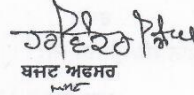 ਹਰਵਿੰਦਰ ਸਿੰਘ
ਬਜਟ ਅਫਸਰ